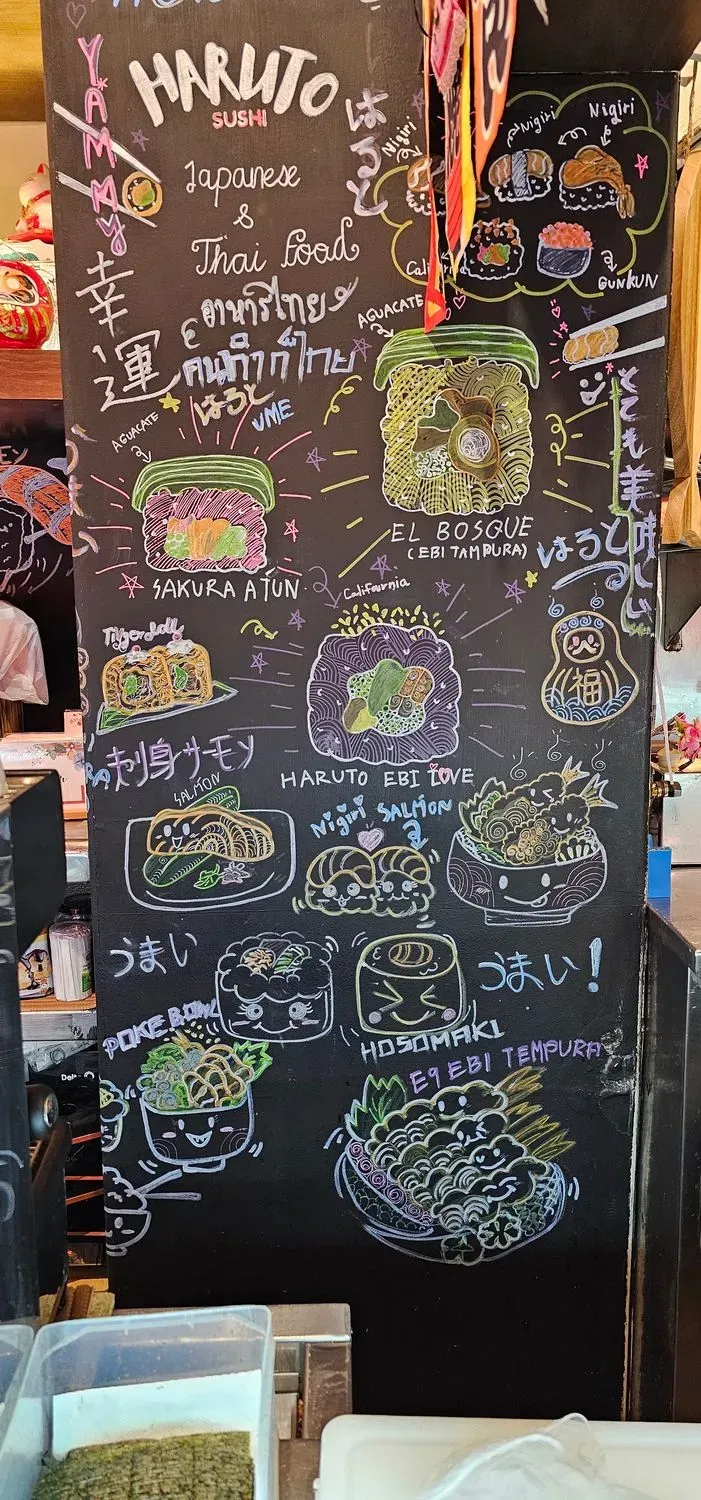 YAMMY
HARUTO
SUSHI
はると
Japanese
&
Thai Food
อาหารไทย
幸運
はると
UME
Nigiri
Nigiri
Nigiri
GUNKUN
AGUACATE
AGUACATE
SAKURA ATUN
EL BOSQUE
(EBI TAMPURA)
とても美味しい
はると
California
Tiger Roll
福
HARUTO EBI LOVE
刺身サーモン
SALMON
Nigiri SALMON
うまい
うまい!
POKE BOWL
HOSOMAKI
E9 EBI TEMPURA